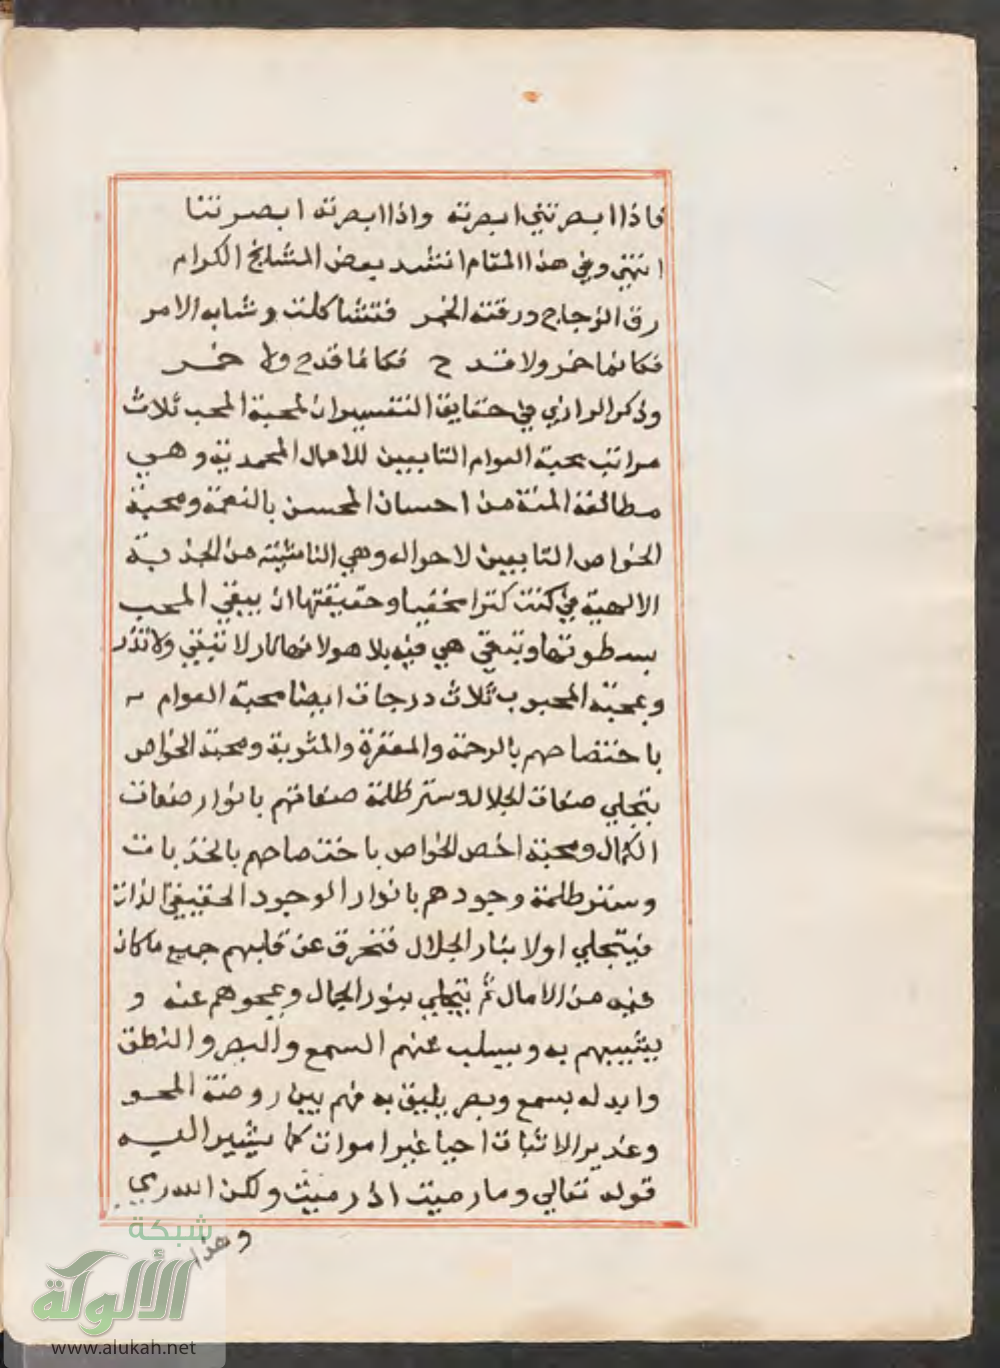 فاذا ابصرتني ابصرته واذا ابصرته ابصرتنا
انتهى وفي هذا المقام انشد بعض المشايخ الكرام
رق الزجاج ورقت الخمر فتشاكلت وشابه الامر
فكانما خمر ولا قدح فكانما قدح ولا خمر
وذكر الرازي في حقايق التفسير ان لمحبة المحب ثلاث
مراتب محبة العوام التابعين للاعمال المحمدية وهي
مطالعة المنة من احسان المحسن بالنعمة ومحبة
الخواص التابعين لاحواله وهي الناشئة من الجذبة
الالهية في كنت كنزا مخفيا وحقيقتها ان يبقى المحب
بسطوتها وتبقى هي فيه بلا هو لانها نار لا تبقي ولا تذر
ومحبة المحبوب ثلاث درجات ايضا محبة العوام
باختصاصهم بالرحمة والمغفرة والمثوبة ومحبة الخواص
بتجلي صفات الجلال وستر ظلمة صفاتهم بانوار صفات
الكمال ومحبة اخص الخواص باختصاصهم بالجذبات
وستر ظلمة وجودهم بانوار الوجود الحقيقي الذات
فيتجلى اولا بنار الجلال فتحرق عن قلبهم جميع ما كان
فيه من الامال ثم يتجلى بنور الجمال ويمحوهم عنه و
يثبتهم به ويسلب عنهم السمع والبصر والنطق
وابدله بسمع وبصر يليق به فهم بين روضة المحو
وغدير الاثبات احيا غير اموات كما يشير اليه
قوله تعالى وما رميت اذ رميت ولكن الله رمى
وهذا
شبكة
الألوكة
www.alukah.net